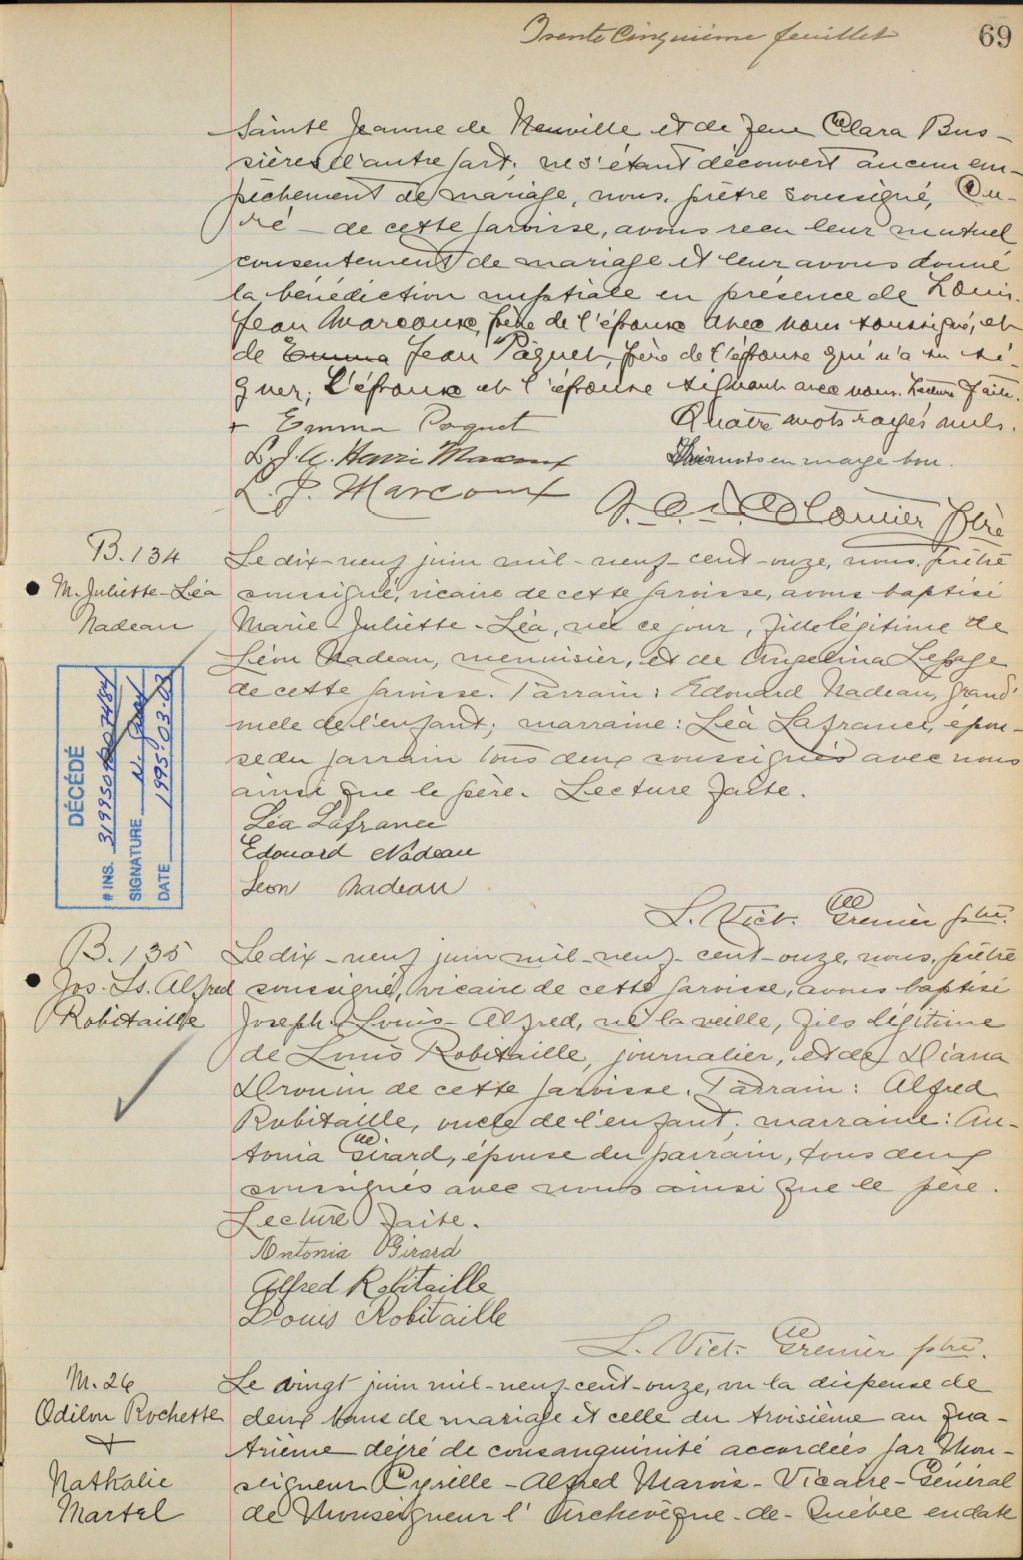 Trente Cinquième feuillet
69
Sainte Jeanne de Neuville et de feue Clara Bus-
sières d'autre part. ne s'étant découvert aucun em-
pêchement de mariage, nous, prêtre soussigné, Cu-
ré - de cette paroisse, avons reçu leur mutuel
consentement de mariage et leur avons donné
la bénédiction nuptiale en présence de Louis
Jean Marcoux, père de l'époux avec nous soussigné, et
de Emma Jean Pâquet, père de l'épouse qui n'a su si-
gner; L'époux et l'épouse signant avec nous. Lecture faite.
+ Emma Paquet
Quatre mots rayés nuls.
L. J. A. Henri Marcoux
mots en marge bon.
L. J. Marcoux
Ptre
B. 134
M. Juliette-Léa
Nadeau
Le dix-neuf juin mil-neuf-cent-onze, nous, prêtre
soussigné, vicaire de cette paroisse, avons baptisé
Marie-Juliette-Léa, née ce jour, fille légitime de
Léon Nadeau, menuisier, et de Angelina Lepage
de cette paroisse. Parrain: Edouard Nadeau, grand'
oncle de l'enfant; marraine: Léa Lafrance, épou-
se du parrain tous deux soussignés avec nous
ainsi que le père. Lecture faite.
DÉCÉDÉ
# INS.
SIGNATURE
DATE 1995 03 03
Léa Lafrance
Edouard Nadeau
Leon Nadeau
L. Vict. Grenier ptre.
B. 135
Jos. Ls. Alfred
Robitaille
Le dix-neuf juin mil-neuf-cent-onze, nous, prêtre
soussigné, vicaire de cette paroisse, avons baptisé
Joseph-Louis-Alfred, né la veille, fils légitime
de Louis Robitaille, journalier, et de Diana
Drouin de cette paroisse. Parrain: Alfred
Robitaille, oncle de l'enfant; marraine: An-
tonia Girard, épouse du parrain, tous deux
soussignés avec nous ainsi que le père.
Lecture faite.
Antonia Girard
Alfred Robitaille
Louis Robitaille
L. Vict. Grenier ptre.
M. 26
Odilon Rochette
+
Nathalie
Martel
Le vingt juin mil-neuf-cent-onze, vu la dispense de
deux bans de mariage et celle du troisième au qua-
trième dégré de consanguinité accordées par Mon-
seigneur Cyrille-Alfred Marois-Vicaire-Général
de Monseigneur l'Archevêque-de-Québec en date